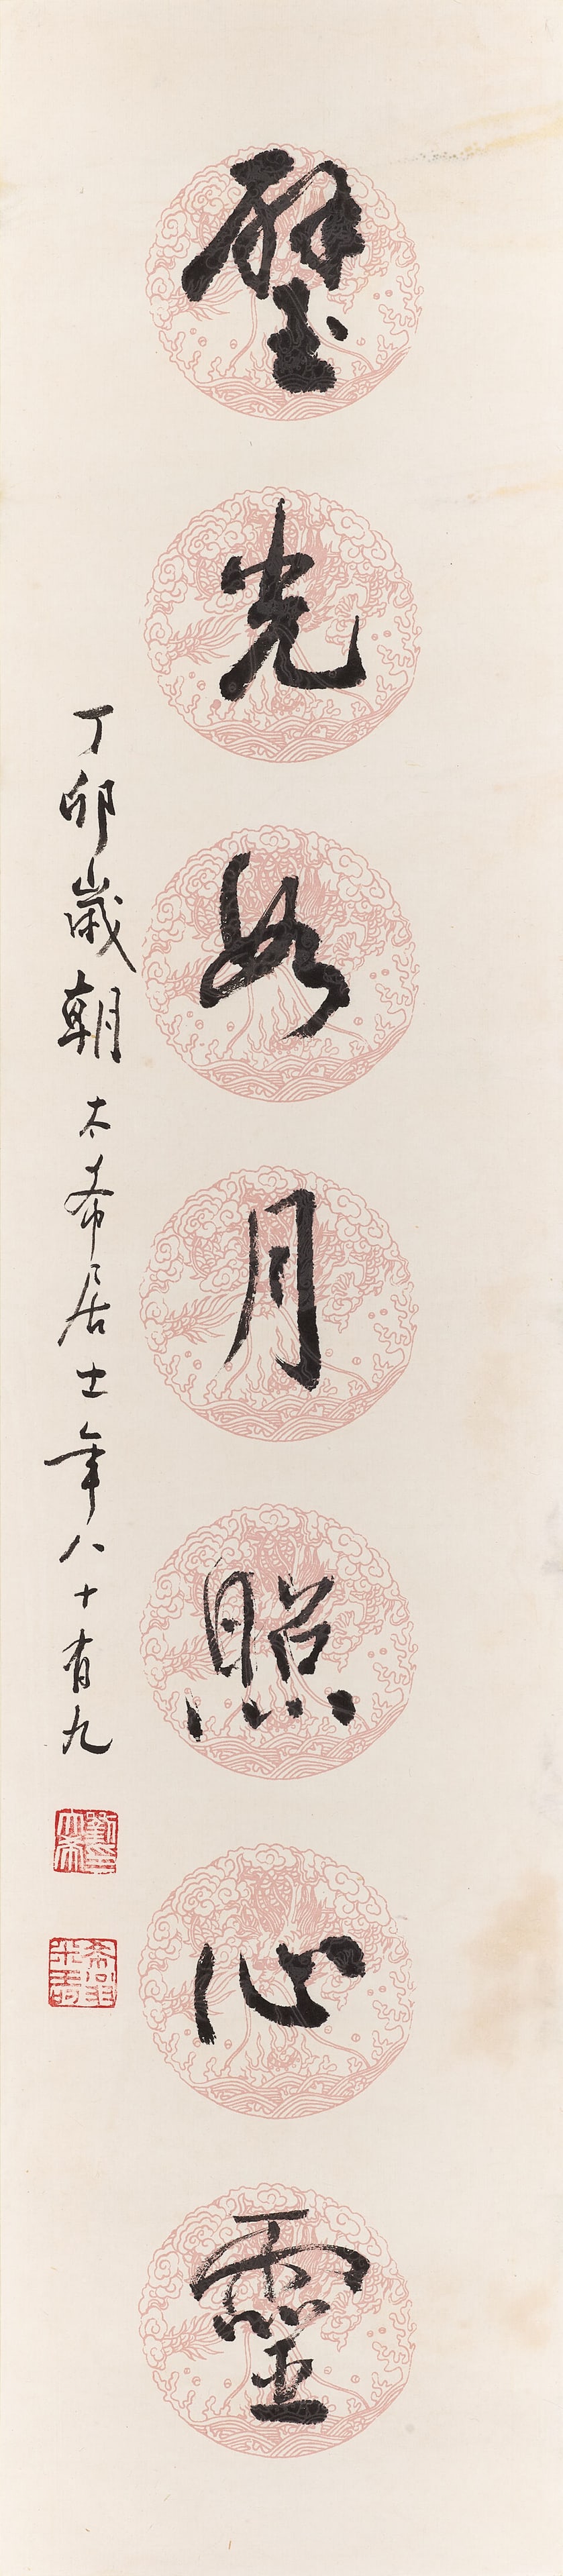 璧光如月照心靈
丁卯歲朝太希居士年八十有九